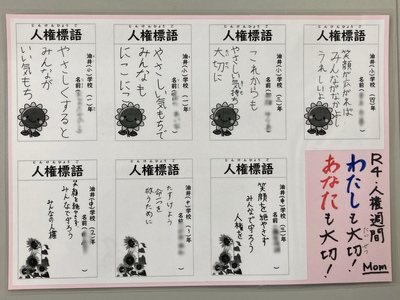 じんけんひょうご
人権標語
油井(小)学校(一)年
名前
やさしくすると
みんなが
いい気もち
じんけんひょうご
人権標語
名前
やさしい気もちで
みんなも
にこにこ
じんけんひょうご
人権標語
油井(小)学校(三)年
名前
これからも
やさしい気持ち
大切に
じんけんひょうご
人権標語
油井(小)学校(四)年
名前
笑顔が広がれば
みんながなかよし
うれしいよ
じんけんひょうご
人権標語
名前
笑顔を絶やさず
みんなで守ろう
みんなの人権
じんけんひょうご
人権標語
油井(中)学校(1)年
名前
たすけよう
命一つを
救うために
じんけんひょうご
人権標語
油井(中)学校(三)年
名前
笑顔を絶やさず
みんなで守ろう
人権を
R4.人権週間
わたしも大切!
あなたも大切!
Mom